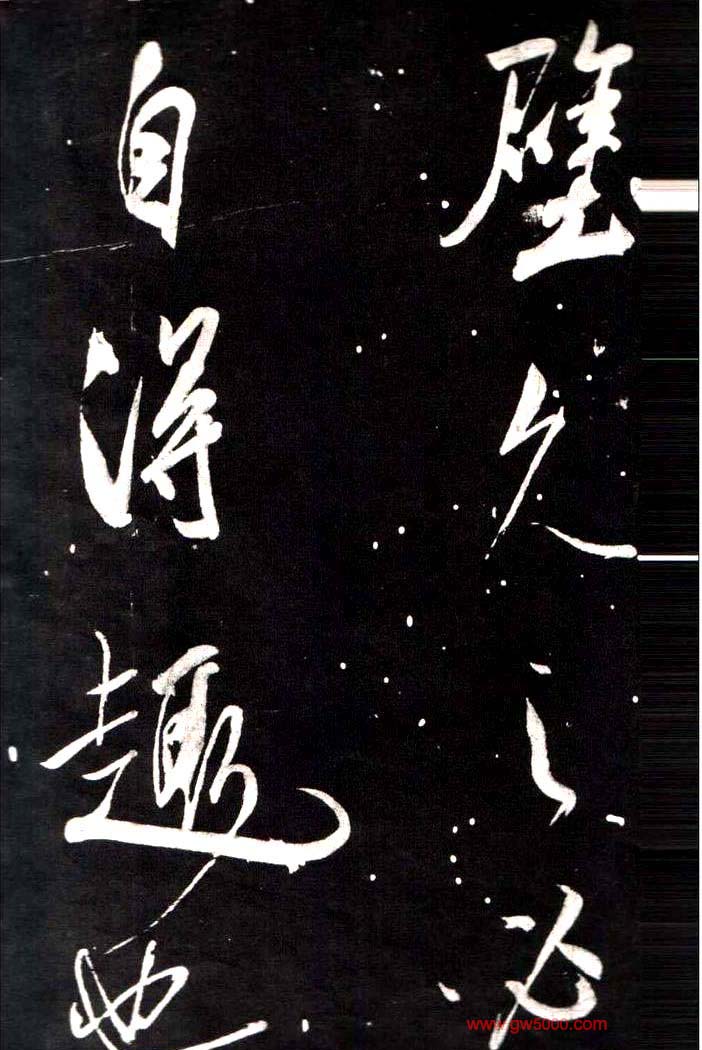 壁久之必
自得趣也
www.gw5000.com